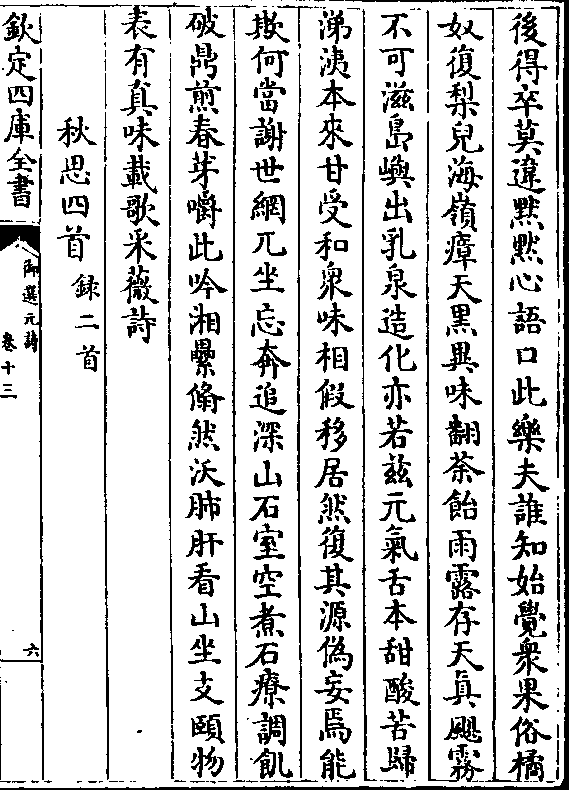 後得卒莫違黙黙心語口此樂夫誰知始覺衆果俗橘
奴復梨兒海嶺瘴天黑異味翻荼飴雨露存天真颶霧
不可滋島嶼出乳泉造化亦若兹元氣舌本甜酸苦歸
涕洟本來甘受和衆味相假移居然復其源偽妄焉能
欺何當謝世網兀坐忘奔追深山石室空煮石療調飢
破鼎煎春芽嚼此吟湘纍翛然沃肺肝看山坐支頤物
表有真味載歌采薇詩
秋思四首 録二首
欽定四庫全書
御選元詩
卷十三
六